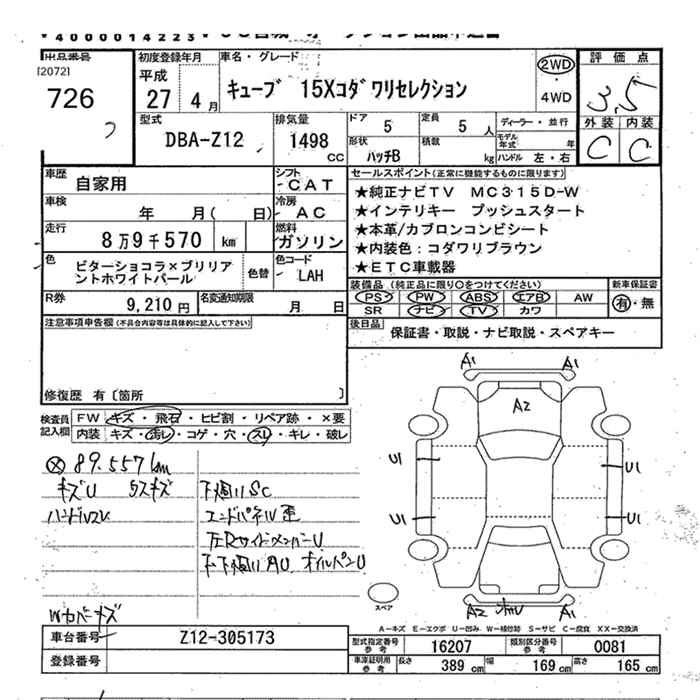 40000014223
出品番号
[2072]
726
初度登録年月
平成
27 年 4 月
車名・グレード
キューブ 15Xコダワリセレクション
2WD
・
4WD
評価点
3.5
外装 内装
C C
型式
DBA-Z12
排気量
1498 CC
ドア
5
定員
5 人
ディーラー・並行
モデル年式 年
形状
ハッチB
積載
kg
ハンドル 左・右
車歴
自家用
シフト
CAT
車検
年 月( 日)
冷房
AC
走行
8万9千570 km
燃料
ガソリン
色
ビターショコラ×ブリリア
ントホワイトパール
色替
色コード
LAH
R券
9,210 円
名変通知期限
月 日
セールスポイント(正常に機能するものに限ります)
★純正ナビTV MC315D-W
★インテリキー プッシュスタート
★本革/カブロンコンビシート
★内装色:コダワリブラウン
★ETC車載器
装備品 (純正品に限り○をつけてください)
PS PW ABS エアB AW
SR ナビ TV カワ
新車保証書
有・無
後日品
保証書・取説・ナビ取説・スペアキー
注意事項申告欄(不具合内容等は具体的に記入して下さい)
修復歴 有〔箇所 〕
検査員記入欄
FW キズ・飛石・ヒビ割・リペア跡・×要
内装 キズ・汚レ・コゲ・穴・スレ・キレ・破レ
89.557km
キズU ウスキズ
下廻りSC
ハンドルスレ
エンドパネル歪
左Rサイドメンバー U
下廻り AU オイルパンU
Wカバーキズ
A1 A1
A2
U1 U1
U1 U1
A2 A1
スペア
A-キズ E-エクボ U-凹み W-補修跡 S-サビ C-腐食 XX-交換済
車台番号
Z12-305173
登録番号
型式指定番号 参考
16207
類別区分番号 参考
0081
車庫証明用 参考
長さ 389 cm
幅 169 cm
高さ 165 cm